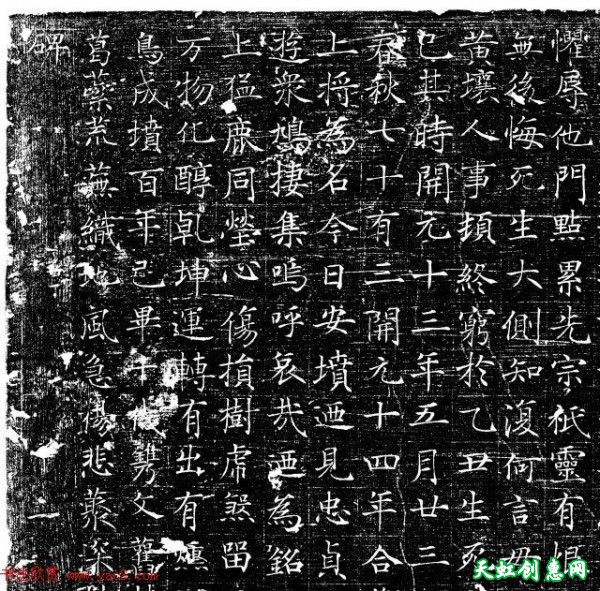 懼辱他門點累先宗祇靈有
無後悔死生大側知復何言
黃壤人事頓終窮於乙丑生死
已其時開元十三年五月廿三
春秋七十有三開元十四年合
上將為名今日安墳迺見忠貞
遊眾鳩捿集嗚呼哀哉迺為銘
上猛鹿同瑩心傷損樹虎煞留
万物化醇乹坤運轉有出有
鳥成墳百年已畢千鐫文
葛虆荒蕪織地風急悲
碑
天虹创意网